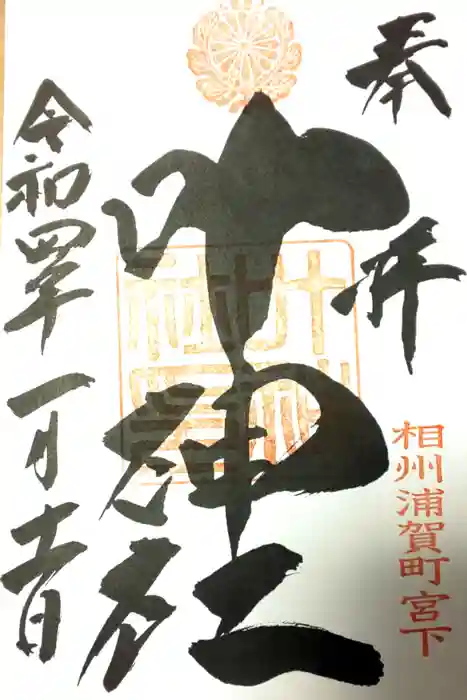 奉拝
相州浦賀町宮下
叶神社
令和四年一月十一日